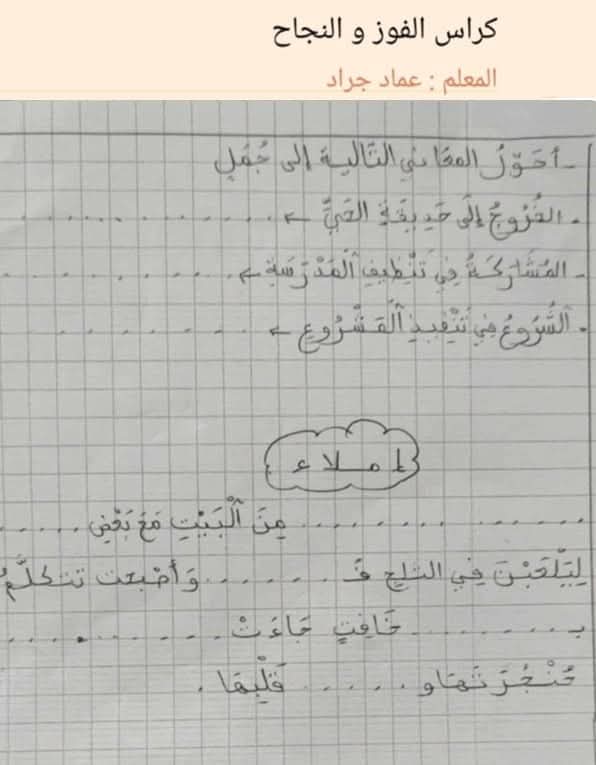 كراس الفوز و النجاح
المعلم : عماد جراد
- أحَوّلُ المعَاني التّالية إلى جُمَلٍ
- الخُرُوجُ إلَى حَدِيقَةِ الحَيِّ ← ............
- المُشَارَكَةُ فِي تَنْظِيفِ ٱلْمَدْرَسَةِ ← ............
- ٱلشُّرُوعُ فِي تَنْفِيذِ ٱلْمَشْرُوعِ ← ............
إملاء
............ مِنَ ٱلْبَيْتِ مَعَ بَعْضِ ......
لِيَلْعَبْنَ فِي الثلجِ فَ ........ وَأصْبَحَت تتكلَّمُ
بـ ............ خَافِتٍ جَاءَتْ ............
حُنْجُرَتهَا و ........ قَلْبِهَا .